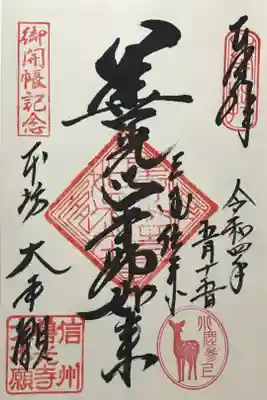 奉拝
令和四年
五月十五日
三国伝来
善光寺如来
御開帳記念
本坊 大本願
信州
善光寺
大本願